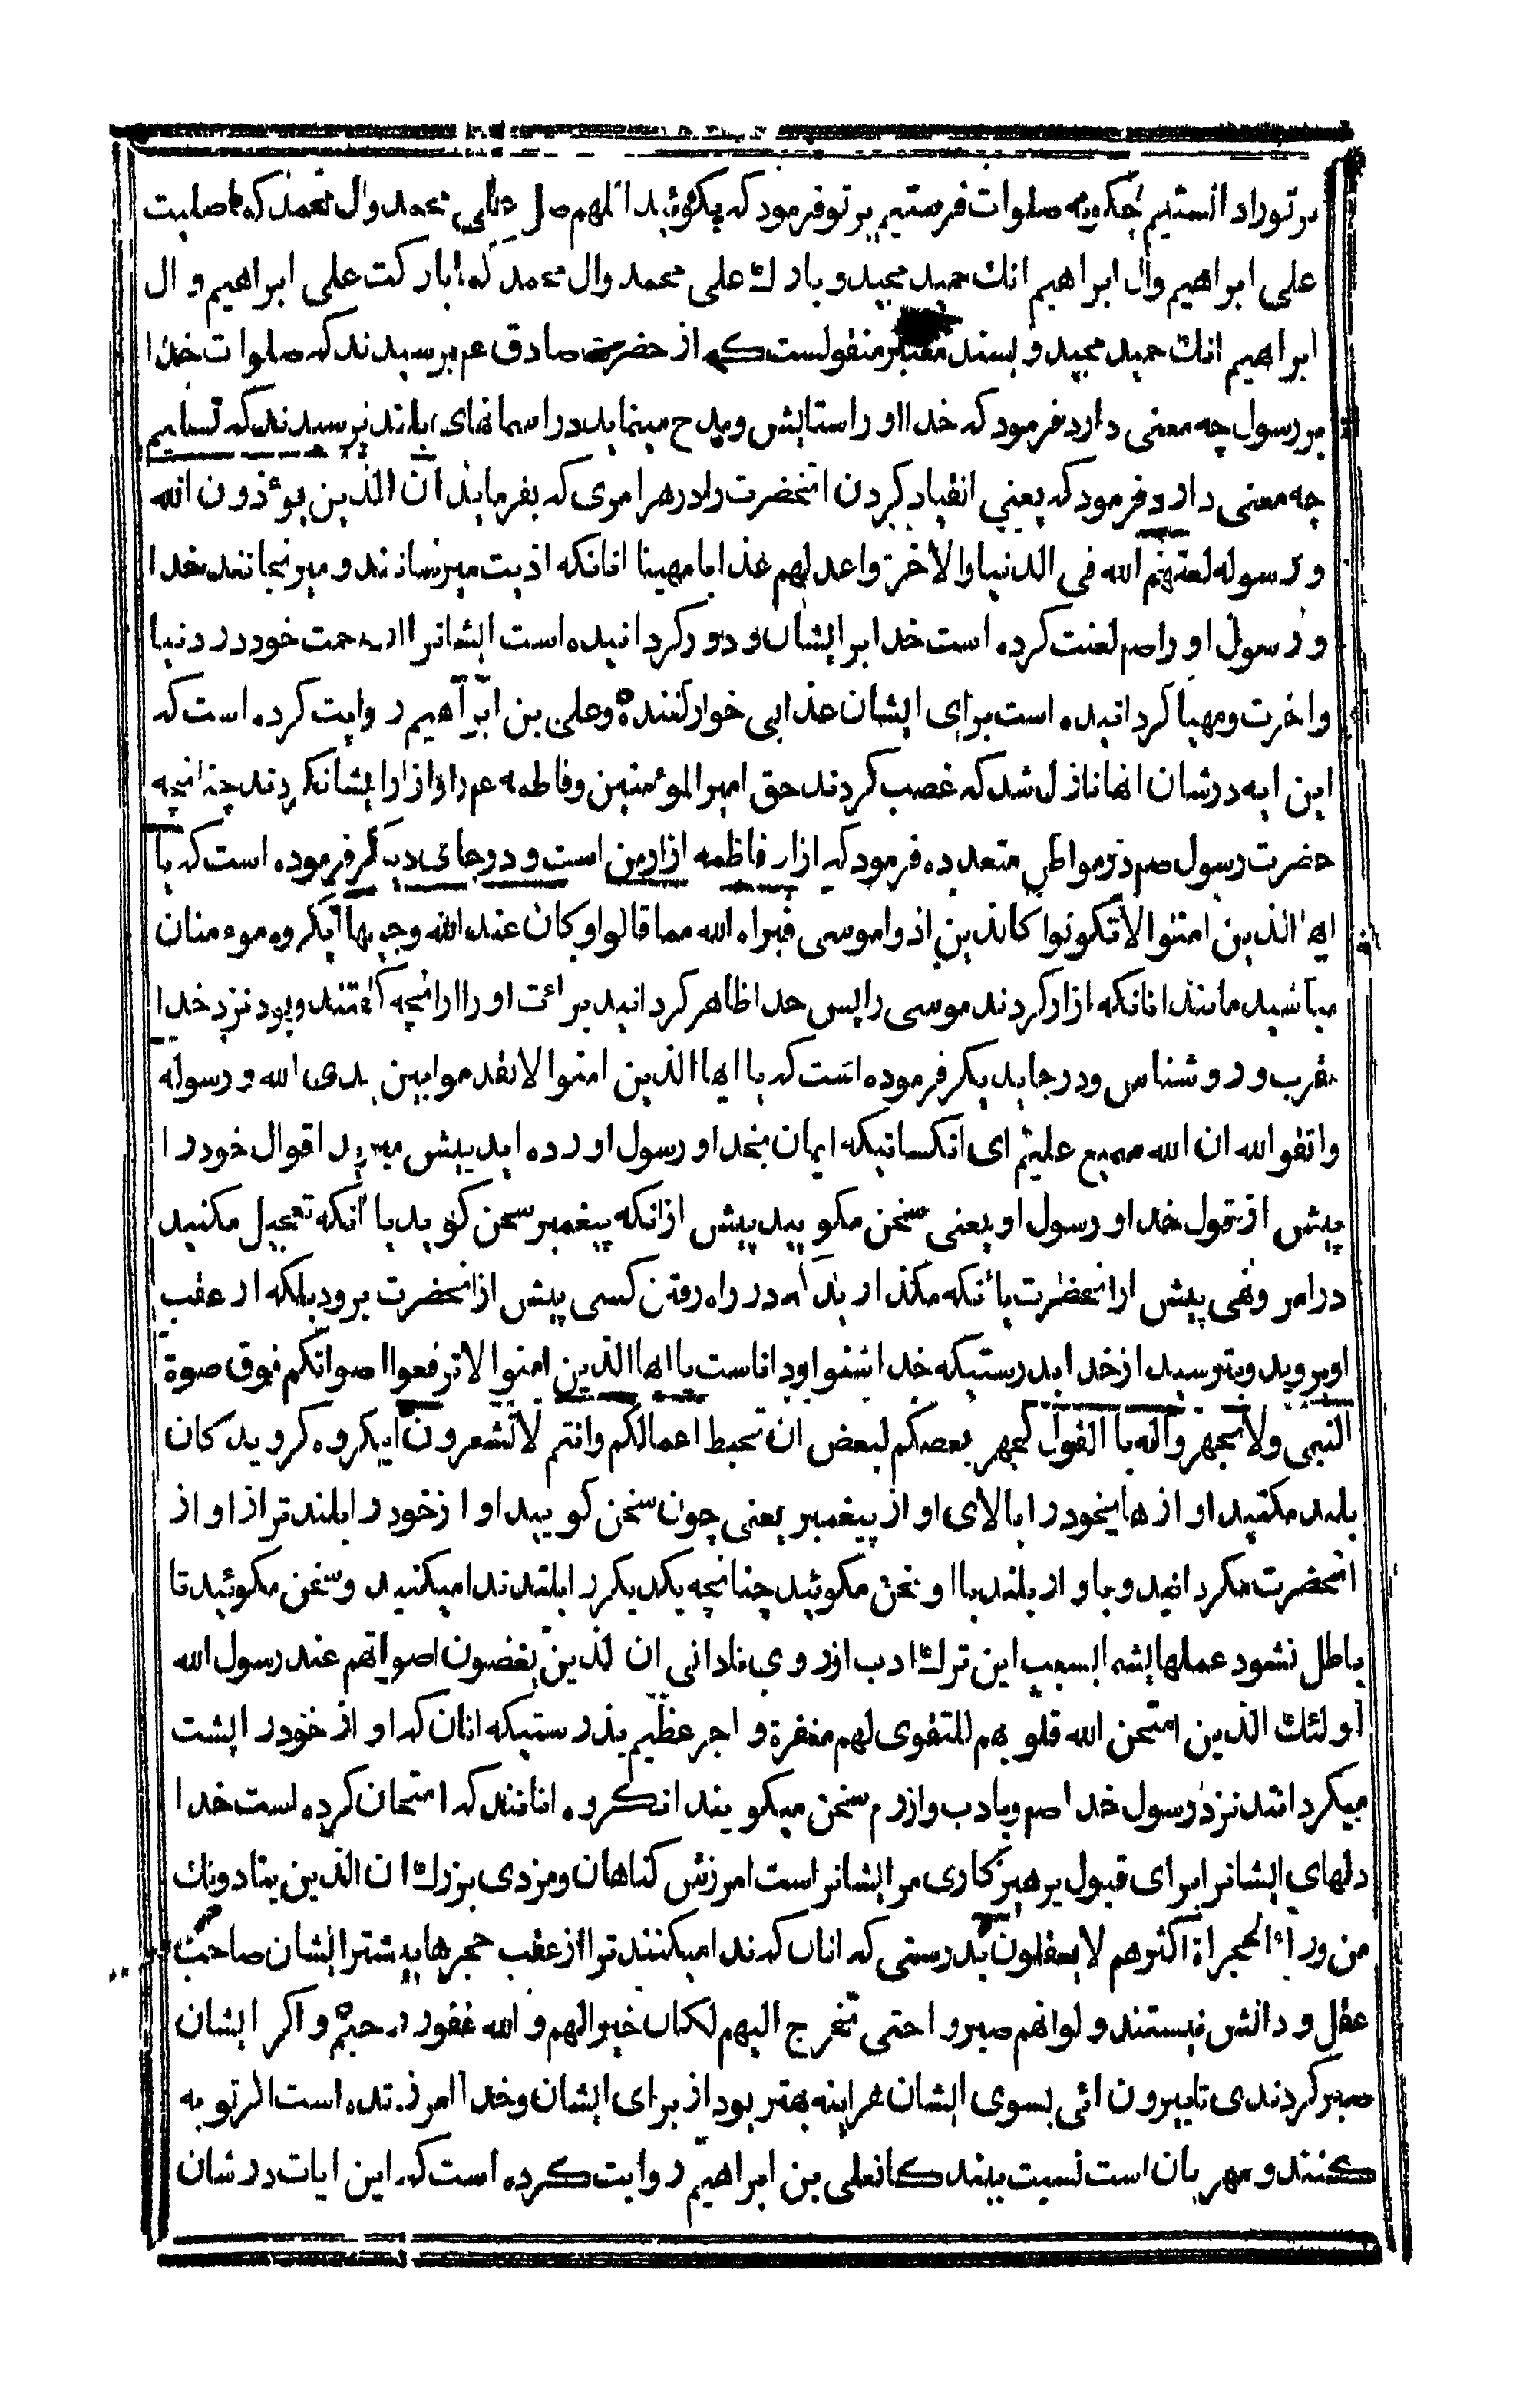 بر تو را دانستیم چگونه صلوات فرستیم بر تو فرمود که بگوئید اللهم صل علی محمد وال محمد کما صلیت
علی ابراهیم وال ابراهیم انك حمید مجید و بارك علی محمد وال محمد کما بارکت علی ابراهیم و ال
ابراهیم انك حمید مجید و بسند معتبر منقولست که از حضرت صادق عم پرسیدند که صلوات خدا
بر رسول چه معنی دارد فرمود که خدا او را ستایش و مدح مینماید در اسمانهای بلند پرسیدند که تسلیم
چه معنی دارد فرمود که یعنی انقیاد کردن انحضرت را در هر امری که بفرماید ان الذین یوءذون الله
و رسوله لعنهم الله فی الدنیا والاخرة واعد لهم عذابا مهینا انانکه اذیت میرسانند و میرنجانند خدا
و رسول او را صم لعنت کرده است خدا بر ایشان و دور کردانیده است ایشانرا از رحمت خود در دنیا
و اخرت و مهیا کردانیده است برای ایشان عذابی خوار کننده وعلی بن ابراهیم روایت کرده است که
این ایه در شان انها نازل شد که غصب کردند حق امیر الموءمنین و فاطمه عم را و ازار ایشانکردند چنانچه
حضرت رسول صم در مواطن متعدده فرمود که ازار فاطمه ازار من است و در جای دیگر فرموده است که یا
ایها الذین امنوا لا تکونوا کالذین اذوا موسی فبراه الله مما قالوا و کان عند الله وجیها ایکروه موءمنان
مباشید مانند انانکه ازار کردند موسی را پس خدا ظاهر کردانید برائت او را از انچه کفتند و بود نزد خدا
مقرب و روشناس و در جاید یکر فرموده است که یا ایها الذین امنوا لا تقدموا بین یدی الله و رسوله
واتقو الله ان الله سمیع علیم ای انکسانیکه ایمان بخدا و رسول اورده اید پیش مبرید اقوال خود را
پیش از قول خدا و رسول او یعنی سخن مکویید پیش ازانکه پیغمبر سخن کوید یا انکه تعجیل مکنید
در امر و نهی پیش از انحضرت یا انکه مکذارید که در راه رفتن کسی پیش از انحضرت برود بلکه از عقب
او بروید و بترسید از خدا بدرستیکه خدا شنوا و داناست یا ایها الذین امنوا لا ترفعوا اصواتکم فوق صوة
النبی ولا تجهروا له با القول کجهر بعضکم لبعض ان تحبط اعمالکم وانتم لا تشعرون ایکروه کرویدکان
بلند مکنید اواز هایخود را بالای اواز پیغمبر یعنی چون سخن کویید اواز خود را بلند تر از اواز
انحضرت مکردانید و باواز بلند با او سخن مکوئید چنانچه یکدیکر را بلند ندا میکنید و سخن مکوئید تا
باطل نشود عملهایشما بسبب این ترك ادب از روی نادانی ان الذین یغضون اصواتهم عند رسول الله
اولئك الذین امتحن الله قلوبهم للتقوی لهم مغفرة و اجر عظیم بدرستیکه انان که اواز خود را پست
میکردانند نزد رسول خدا صم و بادب و ازرم سخن میکویند انکروه انانند که امتحان کرده است خدا
دلهای ایشانرا برای قبول پرهیزکاری مر ایشانراست امرزش کناهان و مزدی بزرك ان الذین ینادونك
من وراء الحجراة اکثرهم لا یعقلون بدرستی که انان که ندا میکنند ترا از عقب حجرها بیشتر ایشان صاحب
عقل و دانش نیستند و لو انهم صبروا حتی تخرج الیهم لکان خیرا لهم و الله غفور رحیم و اکر ایشان
صبر کردندی تا بیرون ائی بسوی ایشان هر اینه بهتر بود از برای ایشان و خدا امرزنده است از توبه
کنند و مهربان است نسبت ببندکان علی بن ابراهیم روایت کرده است که این ایات در شان